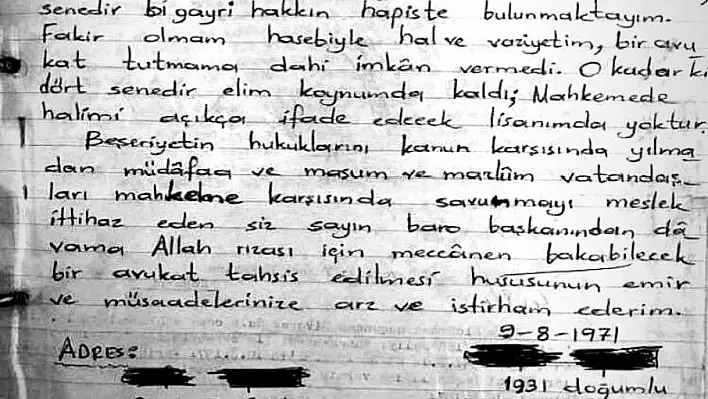 senedir bi gayri hakkın hapiste bulunmaktayım.
Fakir olmam hasebiyle hal ve vaziyetim, bir avu
kat tutmama dahi imkân vermedi. O kadar ki
dört senedir elim koynumda kaldı; Mahkemede
halimi açıkça ifade edecek lisanımda yoktur.
Beşeriyetin hukuklarını kanun karşısında yılma
dan müdâfaa ve masum ve mazlûm vatandaş-
ları mahkeme karşısında savunmayı meslek
ittihaz eden siz sayın baro başkanından dâ
vama Allah rızası için meccânen bakabilecek
bir avukat tahsis edilmesi hususunun emir
ve müsaadelerinize arz ve istirham ederim.
9-8-1971
ADRES:
1931 doğumlu